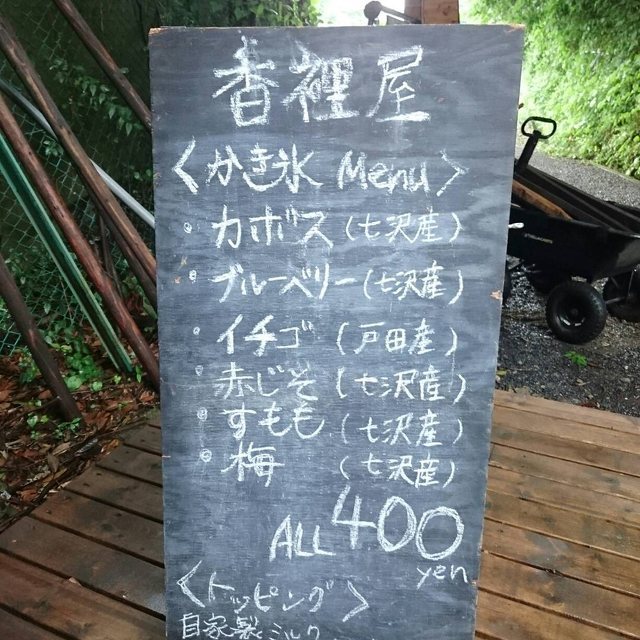 杳裡屋
〈かき氷 Menu〉
・カボス(七沢産)
・ブルーベリー(七沢産)
・イチゴ(戸田産)
・赤じそ(七沢産)
・すもも(七沢産)
・梅(七沢産)
ALL 400 yen
〈トッピング〉
自家製ミルク